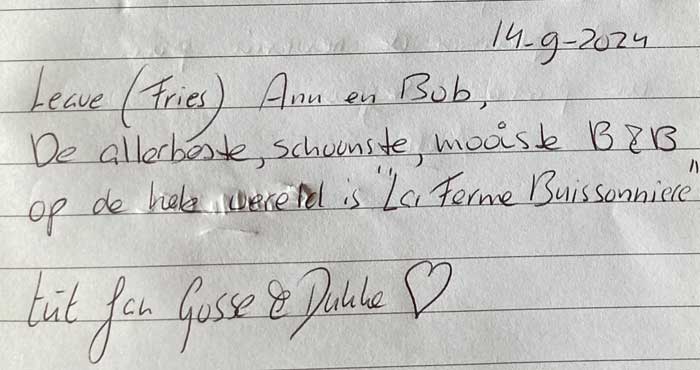 14-9-2024
Leave (Fries) Ann en Bob,
De allerbeste, schoonste, mooiste B&B
op de hele wereld is "La Ferme Buissonniere"
tút fan Gosse & Dukke ♡